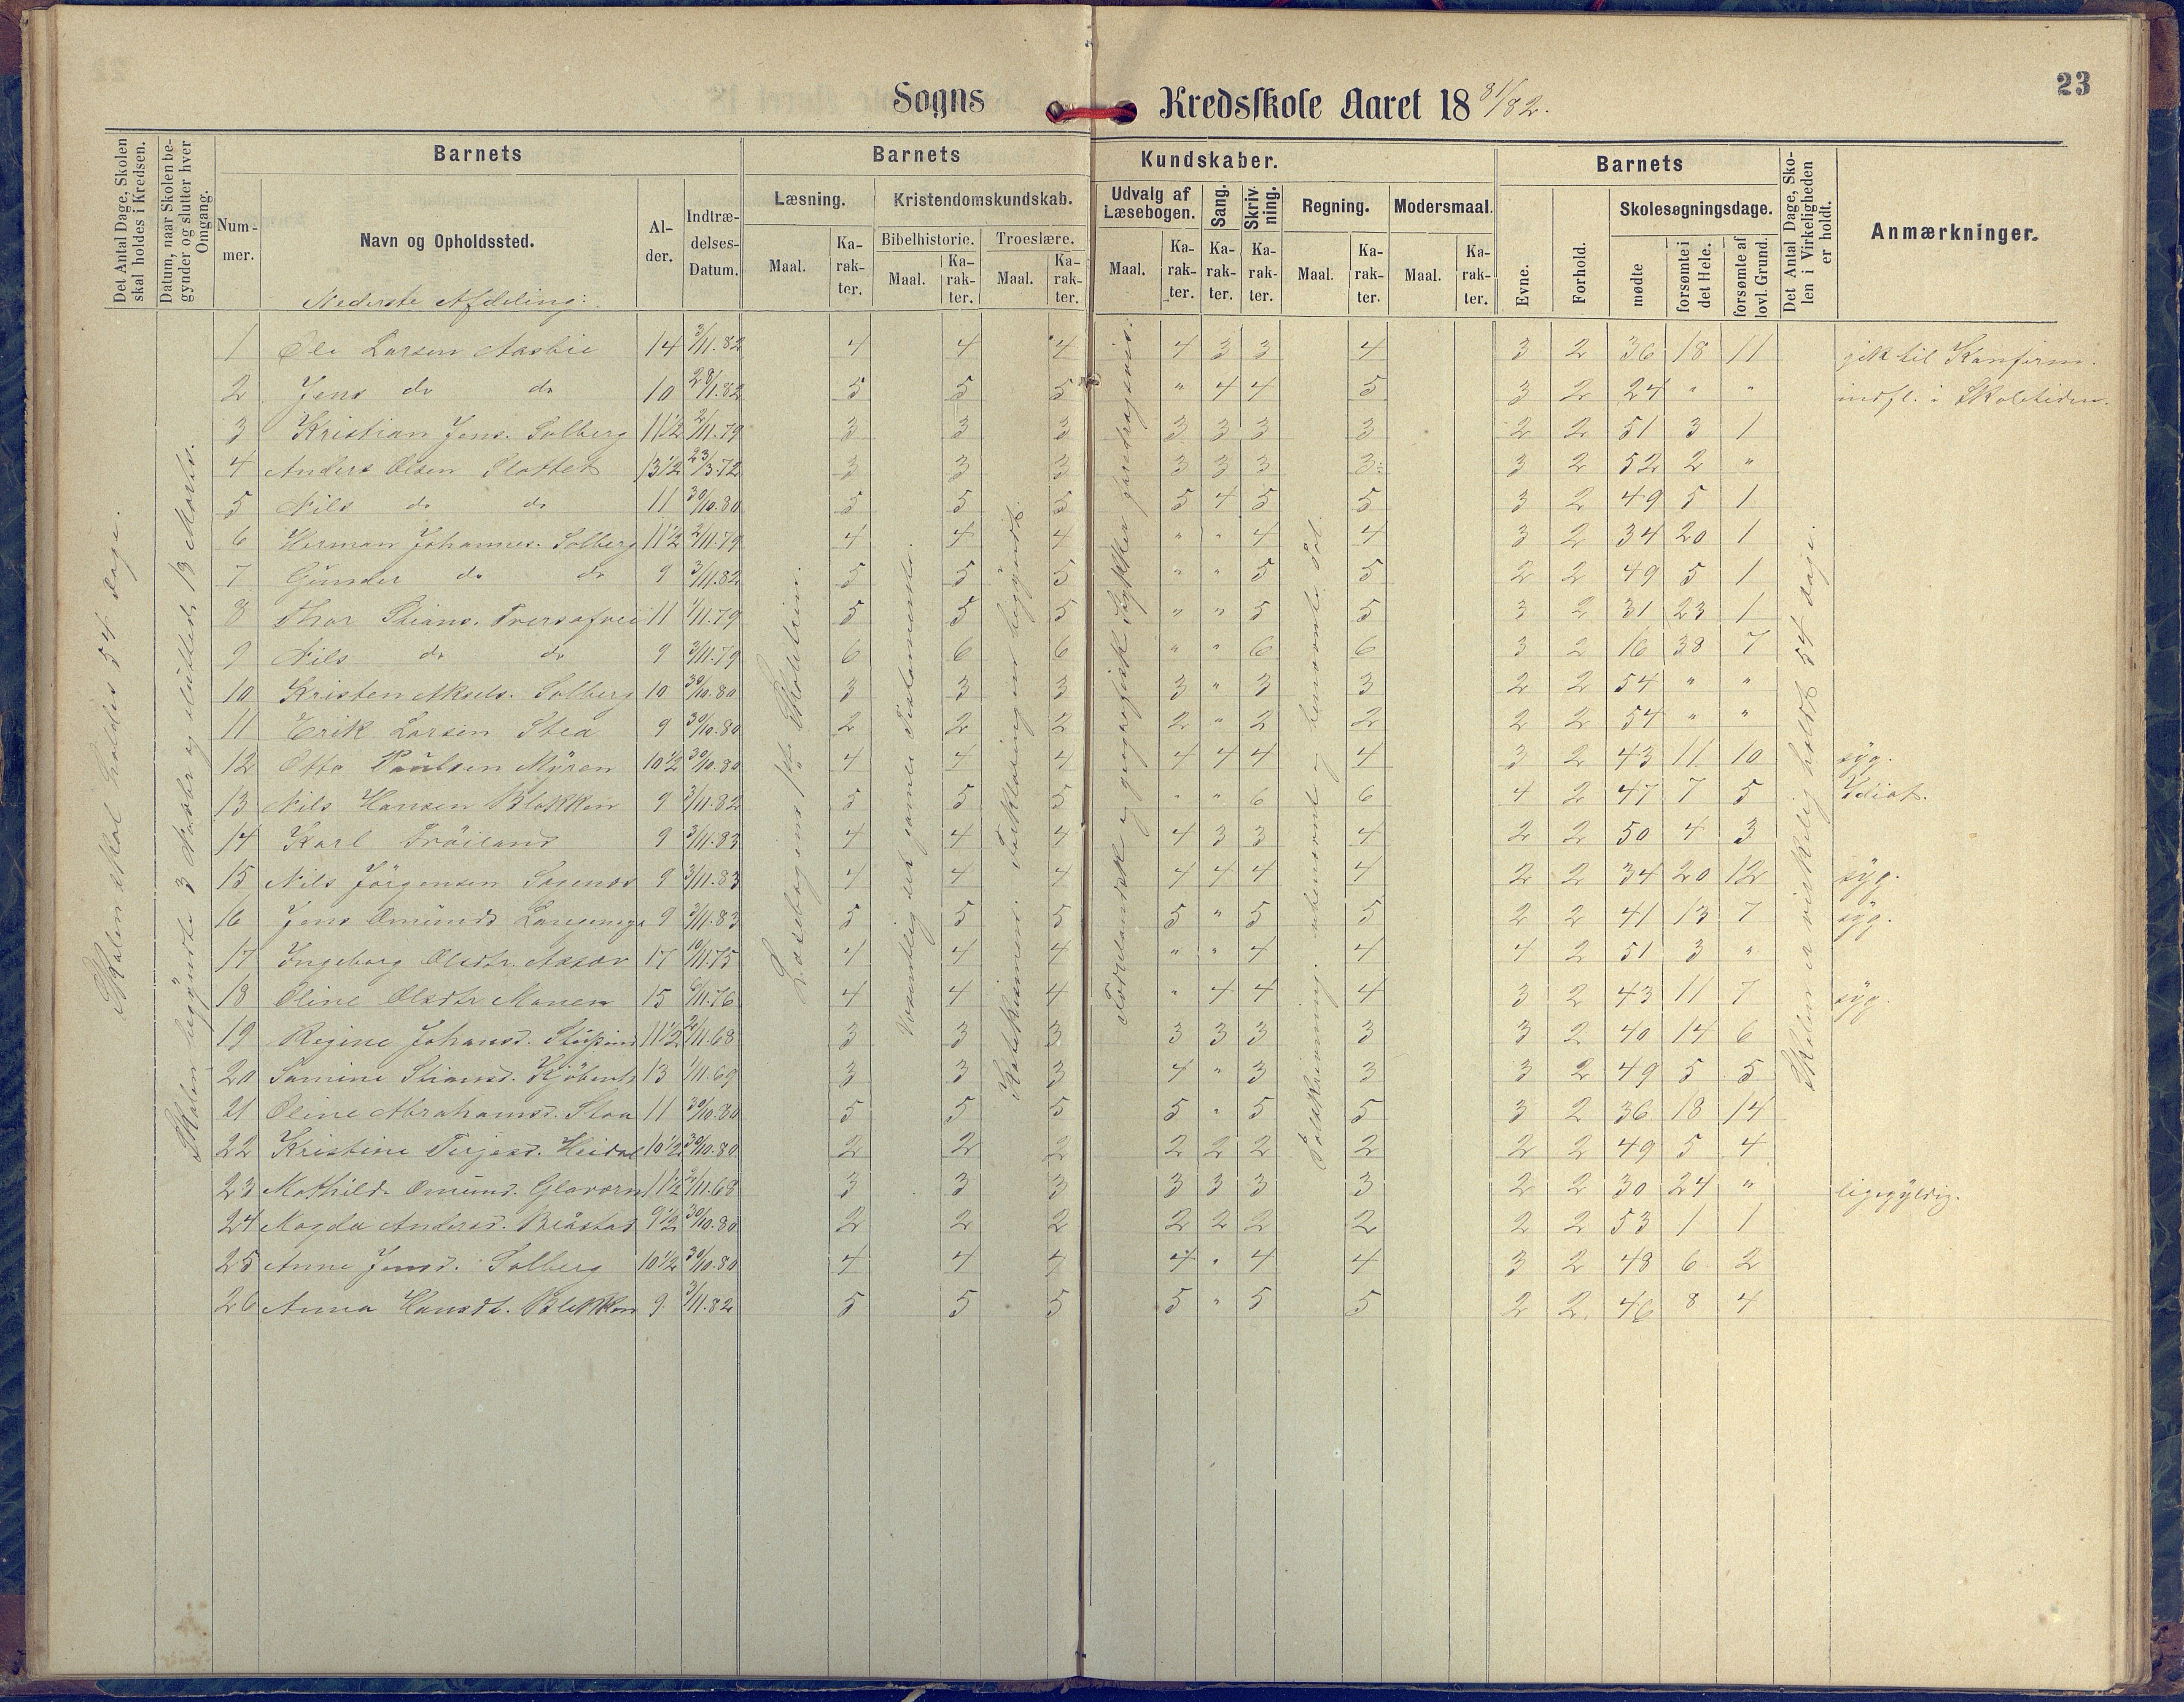 23
Sogns Kredsskole Aaret 18 81/82.
Det Antal Dage, Skolen skal holdes i Kredsen.
Datum, naar Skolen begynder og slutter hver Omgang.
Barnets
Nummer.
Navn og Opholdssted.
Alder.
Indtrædelses-Datum.
Barnets Kundskaber.
Læsning.
Maal. Karakter.
Kristendomskundskab.
Bibelhistorie.
Maal. Karakter.
Troeslære.
Maal. Karakter.
Udvalg af Læsebogen.
Maal. Karakter.
Sang.
Karakter.
Skrivning.
Karakter.
Regning.
Maal. Karakter.
Modersmaal.
Maal. Karakter.
Barnets
Evne.
Forhold.
Skolesøgningsdage.
mødte
forsømte i det Hele.
forsømte af lovl. Grund.
Det Antal Dage, Skolen i Virkeligheden er holdt.
Anmærkninger.
Nederste Afdeling:
Skolen skal holdes 54 dage.
Skolen begyndte 3 Novbr og sluttede 13 Marts.
Læsebogens 1ste Skoletrin.
Væsentlig det gamle Testamente.
Katekismen. Forklaring er begyndt.
Fædrelandske og geografiske Stykker
Tavleregning. ubenævnte og benævnte Tal.
Skolen er virkelig holdt 54 dage.
1 Ole Larsen Aasbie 14 3/11.82 4 4 4 4 3 3 4 3 2 36 18 11 gik til Konfirm.
2 Jens do do 10 28/1.82 5 5 5 " 4 4 5 3 2 24 " " indfl. i Skoletiden.
3 Kristian Jens. Solberg 11 1/2 2/11.79 3 3 3 3 3 3 3 2 2 51 3 1
4 Anders Olsen Slottet 13 1/2 23/3.72 3 3 3 3 3 3 3 3 2 52 2 "
5 Nils do do 11 30/10.80 5 5 5 5 4 5 5 3 2 49 5 1
6 Herman Johannes. Solberg 11 1/2 2/11.79 4 4 4 " " 4 4 3 2 34 20 1
7 Gunder do do 9 3/11.82 5 5 5 " " 5 5 2 2 49 5 1
8 Thor Stians. 11 1/11.79 5 5 5 " " 5 5 3 2 31 23 1
9 Nils do do 9 3/11.79 6 6 6 " " 6 6 3 2 16 38 7
10 Kristen Aksels. Solberg 10 30/10.80 3 3 3 3 " 3 3 2 2 54 " "
11 Erik Larsen Stea 9 30/10.80 2 2 2 2 " 2 2 2 2 54 " "
12 Otto Paulsen Myren 10 1/2 30/10.80 4 4 4 4 4 4 4 3 2 43 11 10 syg.
13 Nils Hansen Blekken 9 3/11.82 5 5 5 " " 6 6 4 2 47 7 5 Idiot.
14 Karl Fröiland 9 3/11.83 4 4 4 4 3 3 4 2 2 50 4 3
15 Nils Jörgensen Sagenæs 9 3/11.83 4 4 4 4 4 4 4 2 2 34 20 12 syg.
16 Jens Omunds 9 3/11.83 5 5 5 5 " 5 5 2 2 41 13 7 syg.
17 Ingeborg Olsdtr. 17 10/11.75 4 4 4 " " 4 4 4 2 51 3 "
18 Oline Olsdtr Monen 15 6/11.76 4 4 4 " 4 4 4 3 2 43 11 7 syg.
19 Regine Johansd. 11 1/2 2/11.68 3 3 3 3 3 3 3 3 2 40 14 6
20 Samine Stiansd. 13 1/11.69 3 3 3 4 " 3 3 3 2 49 5 5
21 Oline Abrahamsd. Stoa 11 30/10.80 5 5 5 5 " 5 5 3 2 36 18 14
22 Kristine Terjesd. Heidal 10 1/2 30/10.80 2 2 2 2 2 2 2 2 2 49 5 4
23 Mathilde Omund. 11 1/2 2/11.68 3 3 3 3 3 3 3 2 2 30 24 " ligegyldig.
24 Magda Andersd. Blåstad 9 1/2 30/10.80 2 2 2 2 2 2 2 2 2 53 1 1
25 Anne Jensd. Solberg 10 1/2 30/10.80 4 4 4 4 " 4 4 3 2 48 6 2
26 Anna Hansdt. Blekken 9 3/11.82 5 5 5 5 " 5 5 2 2 46 8 4